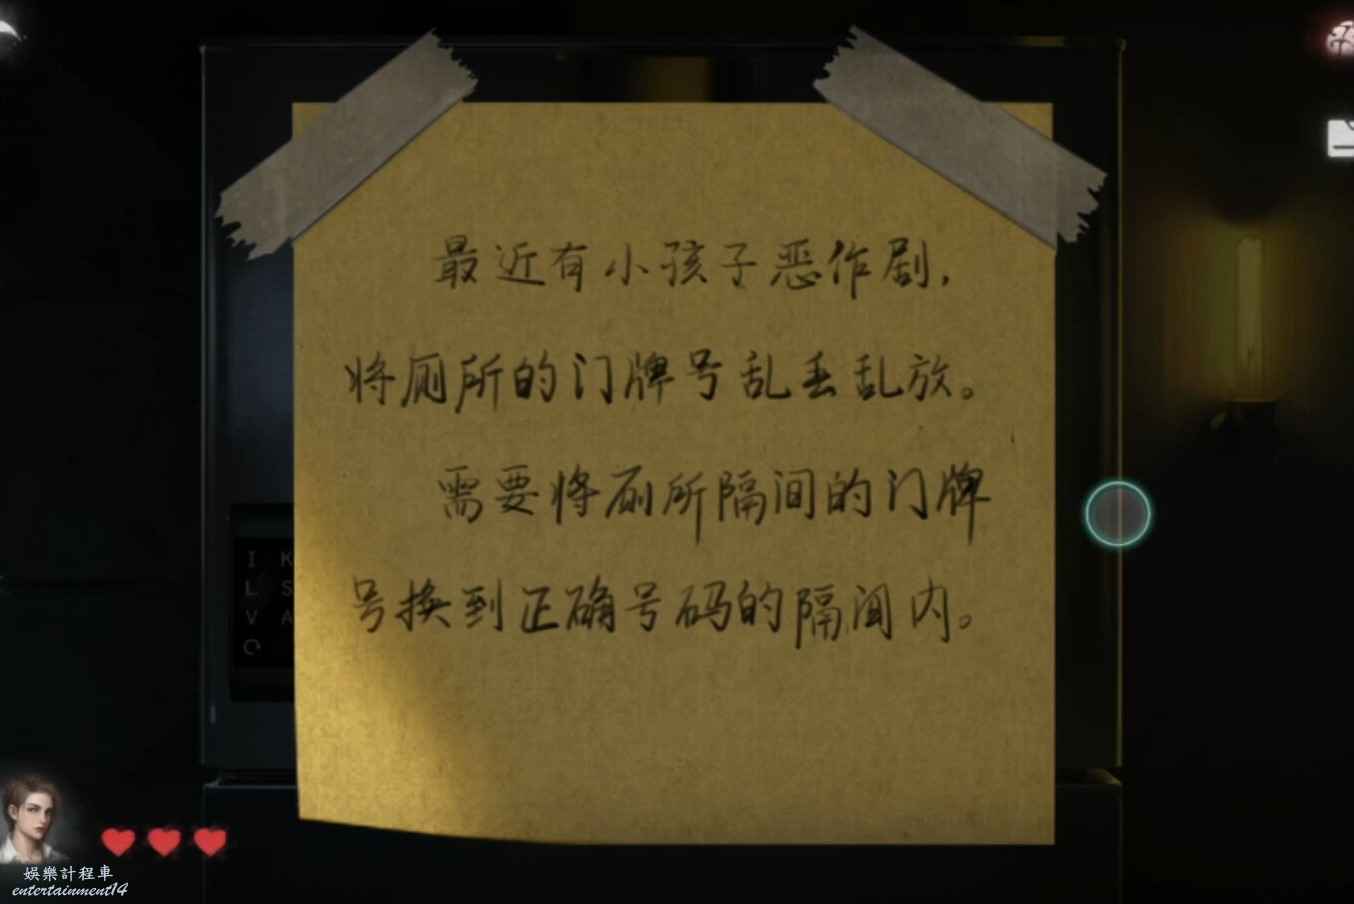 最近有小孩子恶作剧，
将厕所的门牌号乱丢乱放。
需要将厕所隔间的门牌
号换到正确号码的隔间内。
I K
L S
V A
娛樂計程車
entertainment14